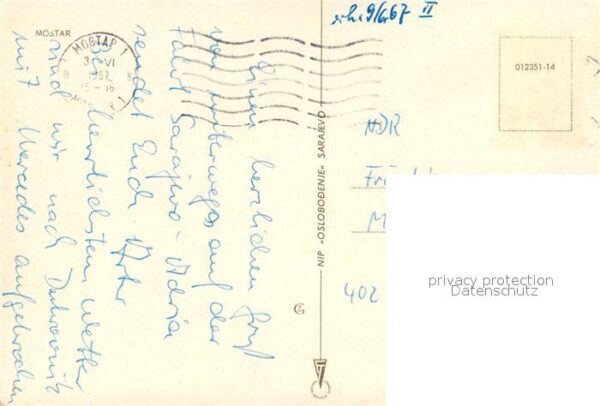 erh. 9/6.67 II
MOSTAR
МОСТАР 1
3 VI
1967
15-16
MOSTAR 1
012351-14
Einen herzlichen Gruß
von unterwegs auf der
Fahrt Sarajewo - Adria
sendet Euch
herrlichstem Wetter
sind wir nach Dubrovnik
mit Mercedes aufgebrochen
NIP »OSLOBOĐENJE« SARAJEVO
NDR
402
privacy protection
Datenschutz